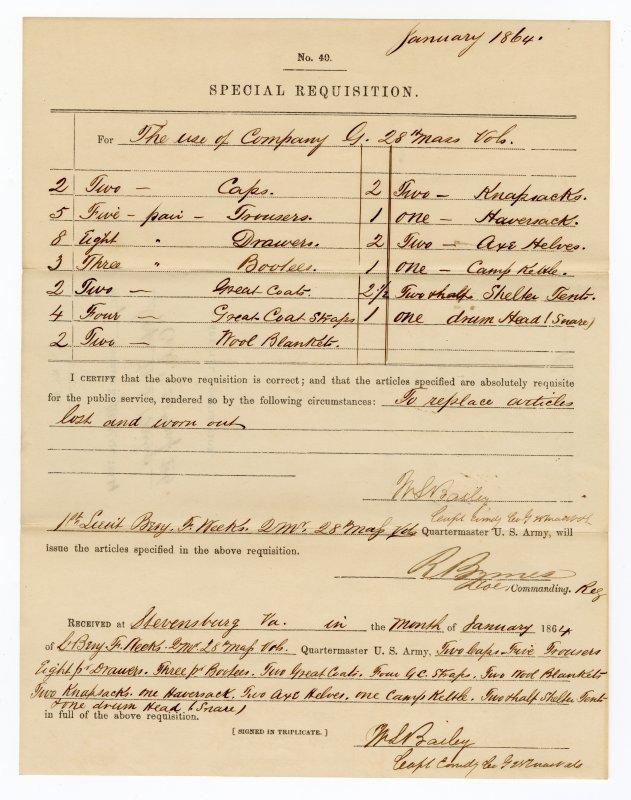 January 1864.
No. 40.
SPECIAL REQUISITION.
For The use of Company G. 28th Mass Vols.
2 Two — Caps. 2 Two — Knapsacks.
5 Five - pair - Trousers. 1 one — Haversack.
8 Eight " Drawers. 2 Two — Axe Helves.
3 Three " Bootees. 1 one — Camp Kettle.
2 Two — Great Coats. 2 1/2 Two & half Shelter Tents.
4 Four — Great Coat Straps 1 one drum Head (Snare)
2 Two — Wool Blankets.
I CERTIFY that the above requisition is correct; and that the articles specified are absolutely requisite
for the public service, rendered so by the following circumstances: To replace articles
lost and worn out
W S Bailey
Capt Comdg Co G 28 Mass Vols
1st Lieut Benj. F. Weeks. Q Mr. 28th Mass Vols Quartermaster U. S. Army, will
issue the articles specified in the above requisition.
R Byrnes
Col, Commanding. Reg
RECEIVED at Stevensburg Va. in the Month of January 1864
of Lt Benj F. Weeks. Q Mr. 28th Mass Vols. Quartermaster U. S. Army, Two Caps. Five Trousers
Eight pr Drawers. Three pr Bootees. Two Great Coats. Four G C. Straps. Two Wool Blankets
Two Knapsacks. one Haversack. Two Axe Helves. one Camp Kettle. Two & half Shelter Tents
& one drum Head (Snare)
in full of the above requisition.
[ SIGNED IN TRIPLICATE. ]
W S Bailey
Capt Comdg Co G 28 Mass Vols